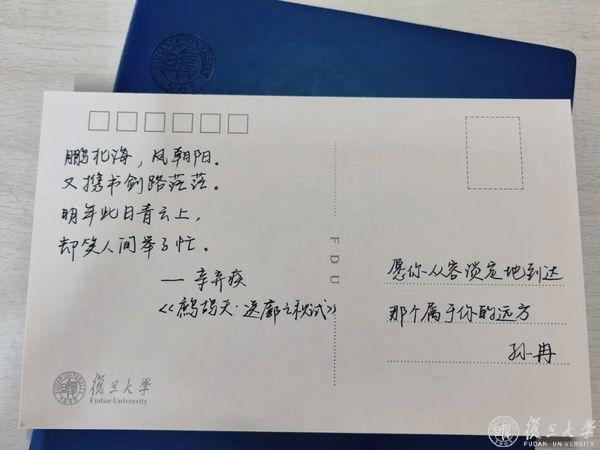 鹏北海，凤朝阳。
又携书剑路茫茫。
明年此日青云上，
却笑人间举子忙。
— 辛弃疾
《鹧鸪天·送廓之秋试》
FDU
愿你从容淡定地到达
那个属于你的远方
孙冉
復旦大学
Fudan University
復旦大学
FUDAN UNIVERSITY